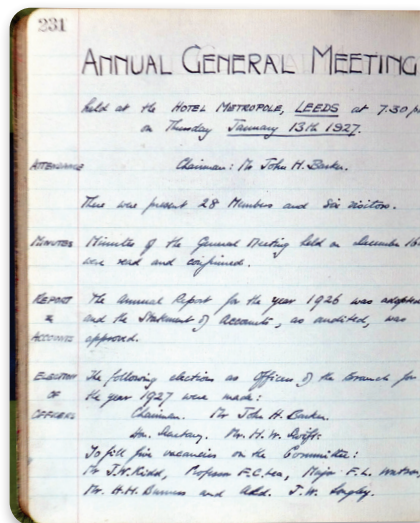 231
ANNUAL GENERAL MEETING
held at the HOTEL METROPOLE, LEEDS at 7.30
on Thursday January 13th 1927.
ATTENDANCE Chairman: Mr John H. Barker.
There were present 28 Members and six visitors.
MINUTES Minutes of the General Meeting held on December 16
were read and confirmed.
REPORT The Annual Report for the year 1926 was adopted
& and the Statement of Accounts, as audited, was
ACCOUNTS approved.
ELECTION The following elections as Officers of the Branch for
OF the year 1927 were made:
OFFICERS Chairman. Mr John H. Barker.
Hon. Secretary. Mr. H.W. Swift:
To fill five vacancies on the Committee:
Mr J.W. Kidd, Professor F.C. Lea, Major F.L. Watson,
Mr. H.H. and J.W.